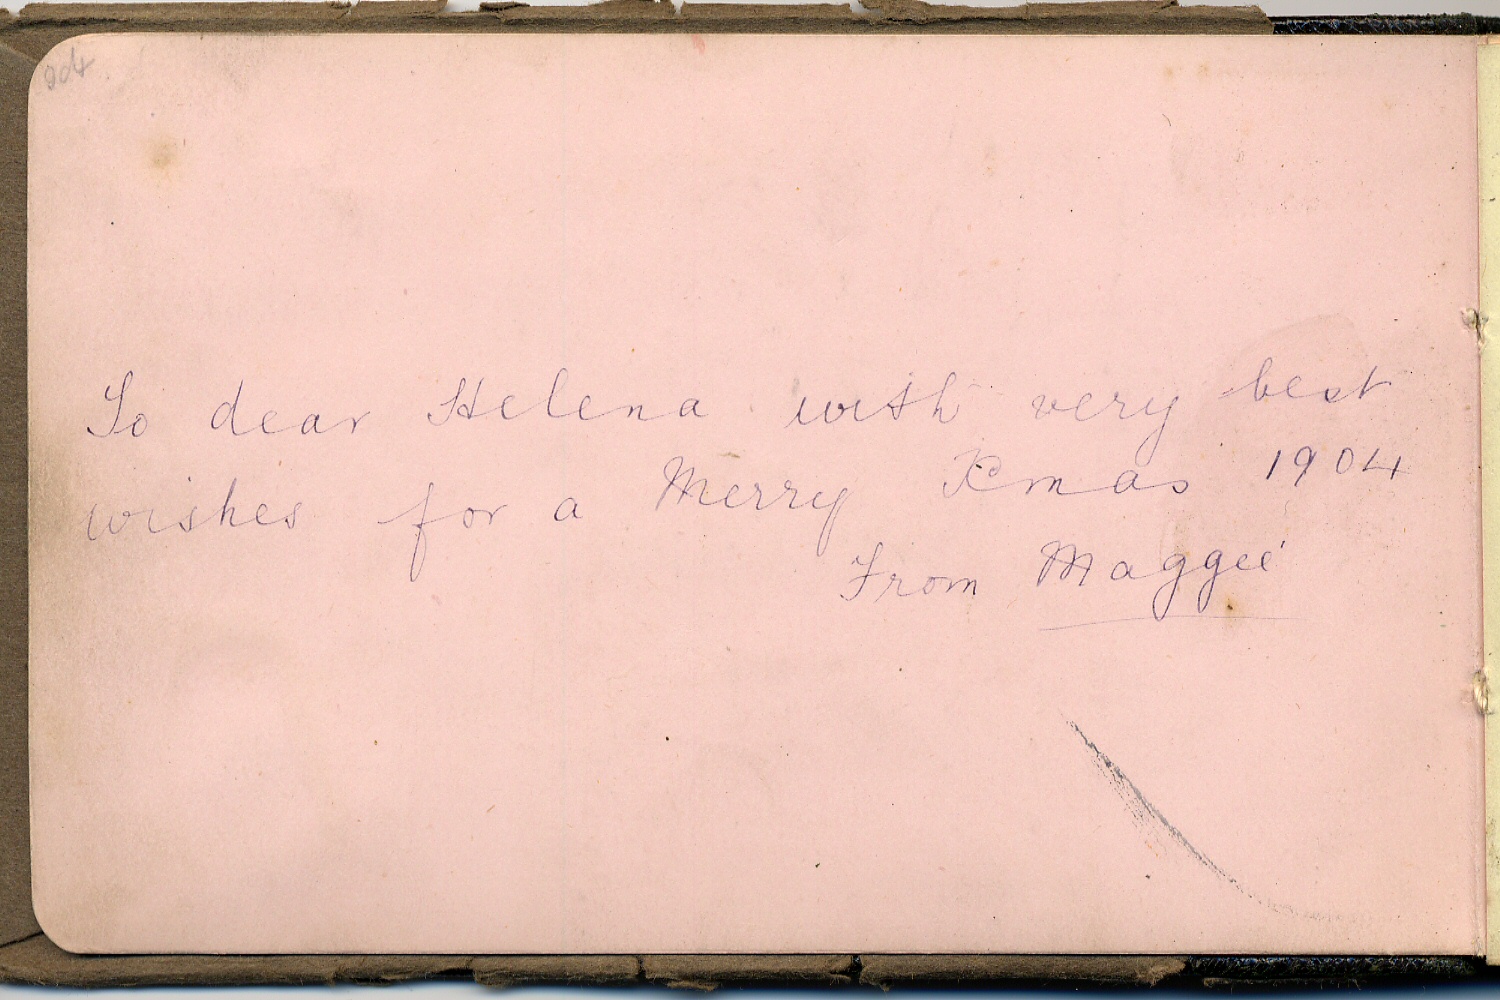 To dear Helena with very best
wishes for a Merry Xmas 1904
From Maggie